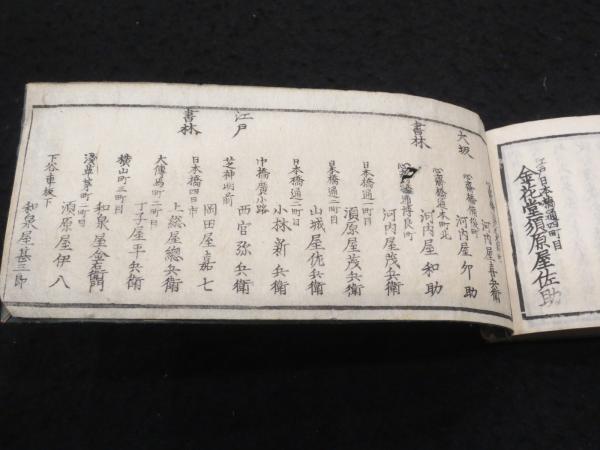 江戸日本橋通四町目
金花堂須原屋佐助
河内屋喜兵衛
大坂
書林
心斎橋備後町
河内屋卯助
心斎橋通本町北
河内屋和助
心斎橋通博良町
河内屋茂兵衛
日本橋通一町目
須原屋茂兵衛
日本橋通二町目
山城屋佐兵衛
日本橋通二町目
小林新兵衛
中橋廣小路
西宮弥兵衛
江戸
書林
芝神明前
岡田屋嘉七
日本橋四日市
上総屋總兵衛
大傳馬町二町目
丁子屋平兵衛
横山町三町目
和泉屋金右衛門
浅草茅町二町目
須原屋伊八
下谷車坂下
和泉屋甚三郎